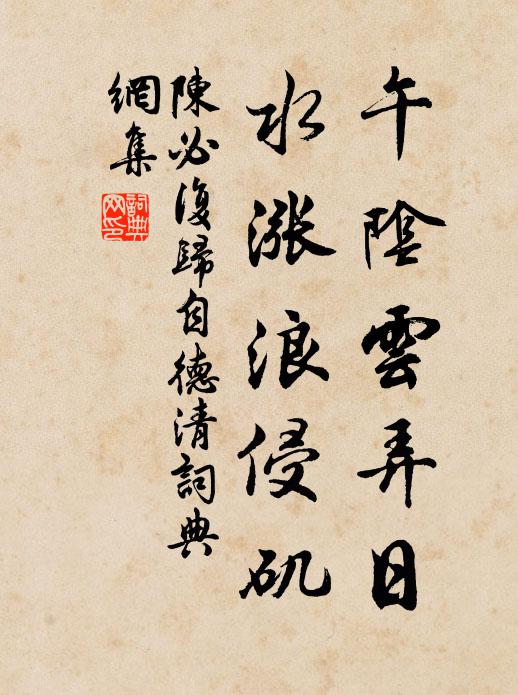 午陰雲弄日
水漲浪侵矶
陳必復歸自德清詞典
網集
詞典
网印